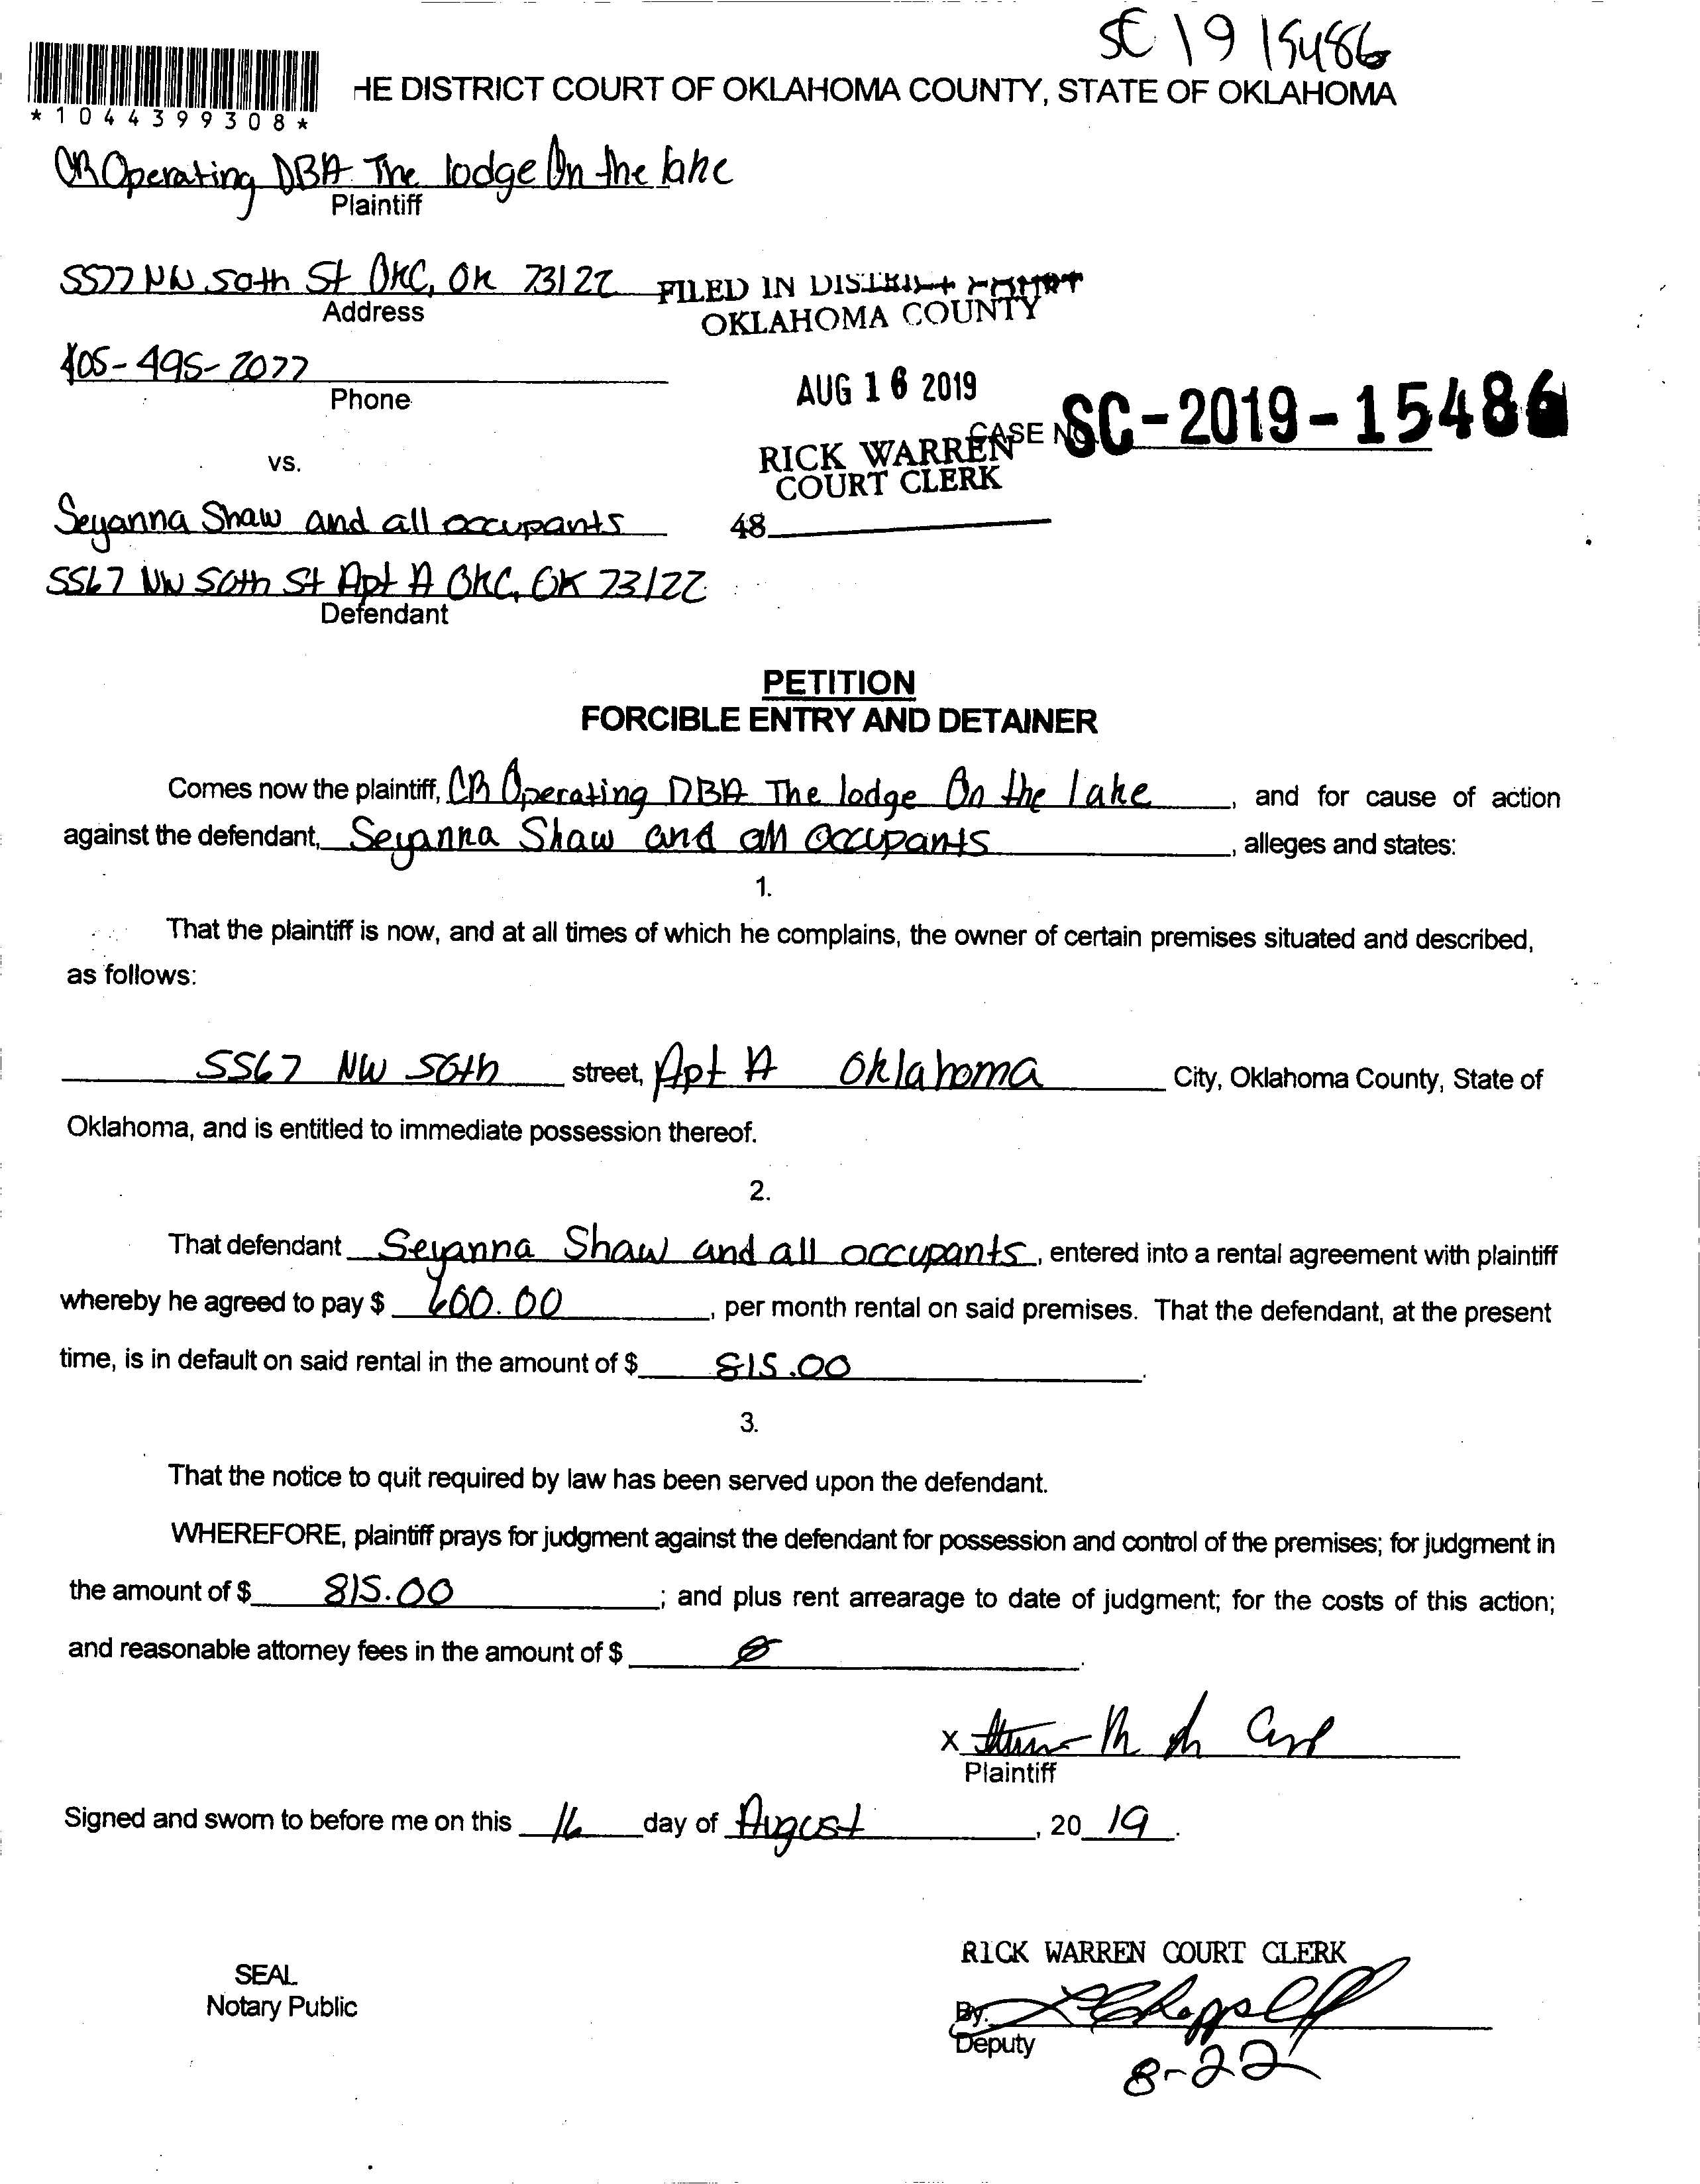 SC 19 15486
*1044399308*
HE DISTRICT COURT OF OKLAHOMA COUNTY, STATE OF OKLAHOMA
CB Operating DBA The lodge On the lake
Plaintiff
5577 NW 50th St OKC, OK 73122
Address
405-495-2077
Phone
FILED IN DISTRICT COURT
OKLAHOMA COUNTY
AUG 16 2019
RICK WARREN
COURT CLERK
48
CASE NO
SC-2019-15486
vs.
Seyanna Shaw and all occupants
5567 NW 50th St Apt A OKC, OK 73122
Defendant
PETITION
FORCIBLE ENTRY AND DETAINER
Comes now the plaintiff, CB Operating DBA The lodge On the lake, and for cause of action
against the defendant, Seyanna Shaw and all occupants, alleges and states:
1.
That the plaintiff is now, and at all times of which he complains, the owner of certain premises situated and described,
as follows:
5567 NW 50th street, Apt A Oklahoma City, Oklahoma County, State of
Oklahoma, and is entitled to immediate possession thereof.
2.
That defendant Seyanna Shaw and all occupants, entered into a rental agreement with plaintiff
whereby he agreed to pay $ 600.00, per month rental on said premises. That the defendant, at the present
time, is in default on said rental in the amount of $ 815.00.
3.
That the notice to quit required by law has been served upon the defendant.
WHEREFORE, plaintiff prays for judgment against the defendant for possession and control of the premises; for judgment in
the amount of $ 815.00; and plus rent arrearage to date of judgment; for the costs of this action;
and reasonable attorney fees in the amount of $ Ø.
X
Plaintiff
Signed and sworn to before me on this 16 day of August, 20 19.
SEAL
Notary Public
RICK WARREN COURT CLERK
By.
Deputy
8-22